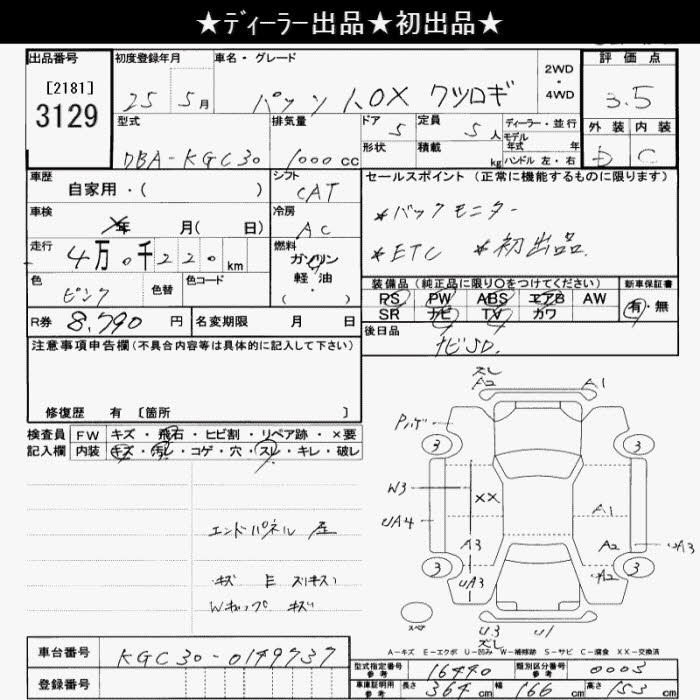 ★ディーラー出品★初出品★
出品番号
[2181]
3129
初度登録年月
25 5月
車名・グレード
パッソ 1.0X クツロギ
2WD・4WD
評価点
3.5
外装 内装
D C
型式
DBA-KGC30
排気量
1000cc
ドア 5
形状
定員 5人
積載 kg
ディーラー・並行
モデル年式 年
ハンドル 左・右
車歴
自家用・( )
シフト
CAT
セールスポイント (正常に機能するものに限ります)
*バックモニター
*ETC *初出品
車検
年 月( 日)
冷房
AC
走行
4万0千220km
燃料
ガソリン
軽油
・( )
色
ピンク
色替
色コード
装備品 (純正品に限り○をつけてください)
PS PW ABS エアB AW
SR ナビ TV カワ
新車保証書
有・無
R券 8,790円
名変期限 月 日
後日品
ナビSD.
注意事項申告欄 (不具合内容等は具体的に記入して下さい)
修復歴 有 〔箇所 〕
検査員記入欄
FW キズ・飛石・ヒビ割・リペア跡・×要
内装 キズ・汚レ・コゲ・穴・スレ・キレ・破レ
エンドパネル
キズ
Wキャップ キズ
ズレ
A2 A1
3 3
W3
XX
UA4
A1
A3
A2
UA3
3 3
UA3
UA2
スペア
U3 U1
ズレ
A-キズ E-エクボ U-凹み W-補修跡 S-サビ C-腐食 XX-交換済
車台番号 KGC30-0149737
登録番号
型式指定番号 参考 16440
類別区分番号 参考 0003
車庫証明用 参考 長さ 364cm 幅 166cm 高さ 153cm